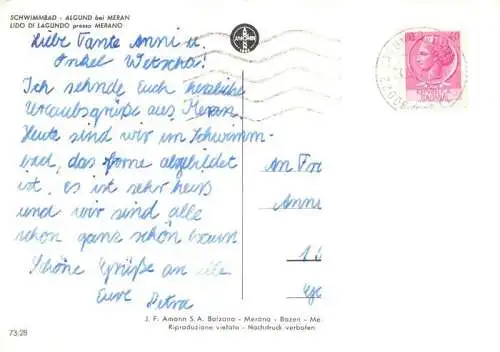 SCHWIMMBAD - ALGUND bei MERAN
LIDO DI LAGUNDO presso MERANO
Liebe Tante Anni u.
Onkel Wetscha!
Ich sehnde Euch herzliche
Urlaubsgrüße aus Meran.
Heute sind wir im Schwimm-
bad, das forne abgebildet
ist, es ist sehr heiß
und wir sind alle
schon ganz schön braun
Schöne Grüße an alle
Eure Petra
An Fr
Anni
J. F. Amonn S. A. Bolzano - Merano - Bozen - Me
Riproduzione vietata - Nachdruck verboten
73-28